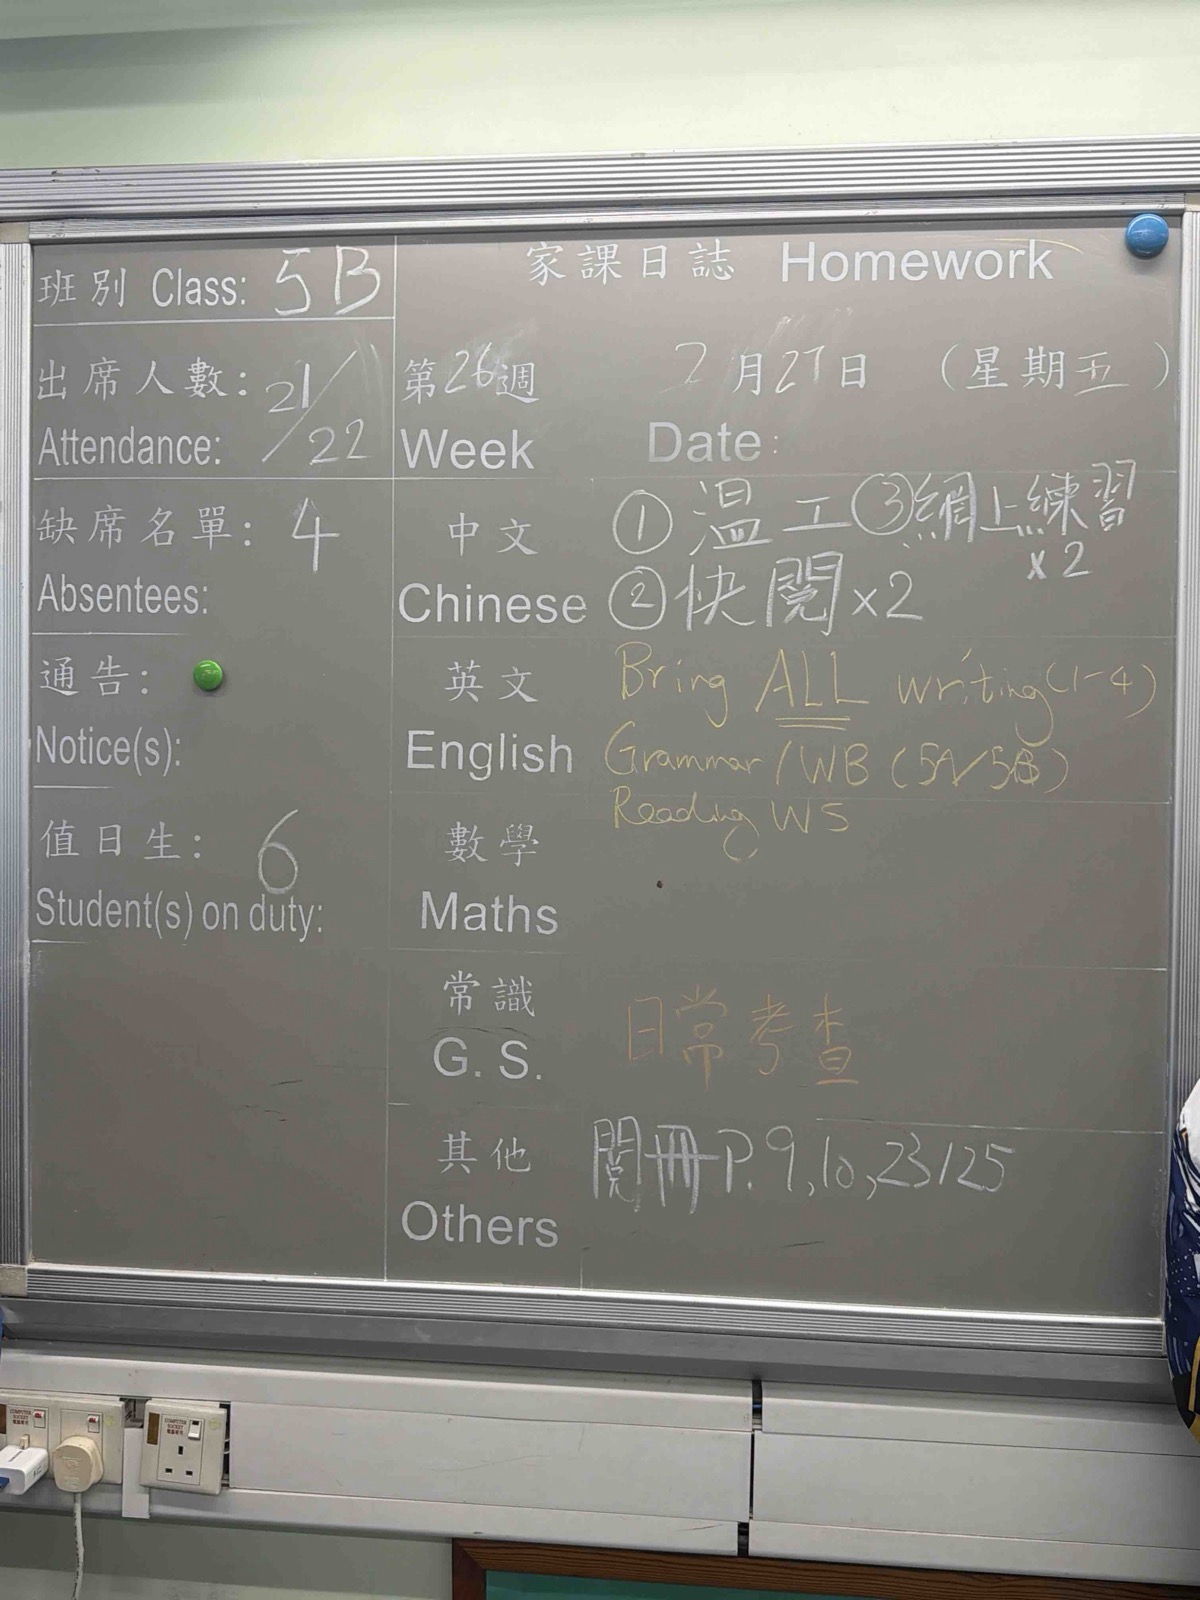 班別 Class: 5B
出席人數: 21/22
Attendance:
缺席名單: 4
Absentees:
通告:
Notice(s):
值日生: 6
Student(s) on duty:
家課日誌 Homework
第26週 2月27日 (星期五)
Week Date:
中文 ① 溫工 ③網上練習 x2
Chinese ② 快閱 x2
英文 Bring ALL writing (1-4)
English Grammar / WB (5A/5B)
Reading WS
數學
Maths
常識 日常考查
G. S.
其他 閱冊 P. 9, 10, 23, 25
Others
COMPUTER SOCKET
COMPUTER SOCKET